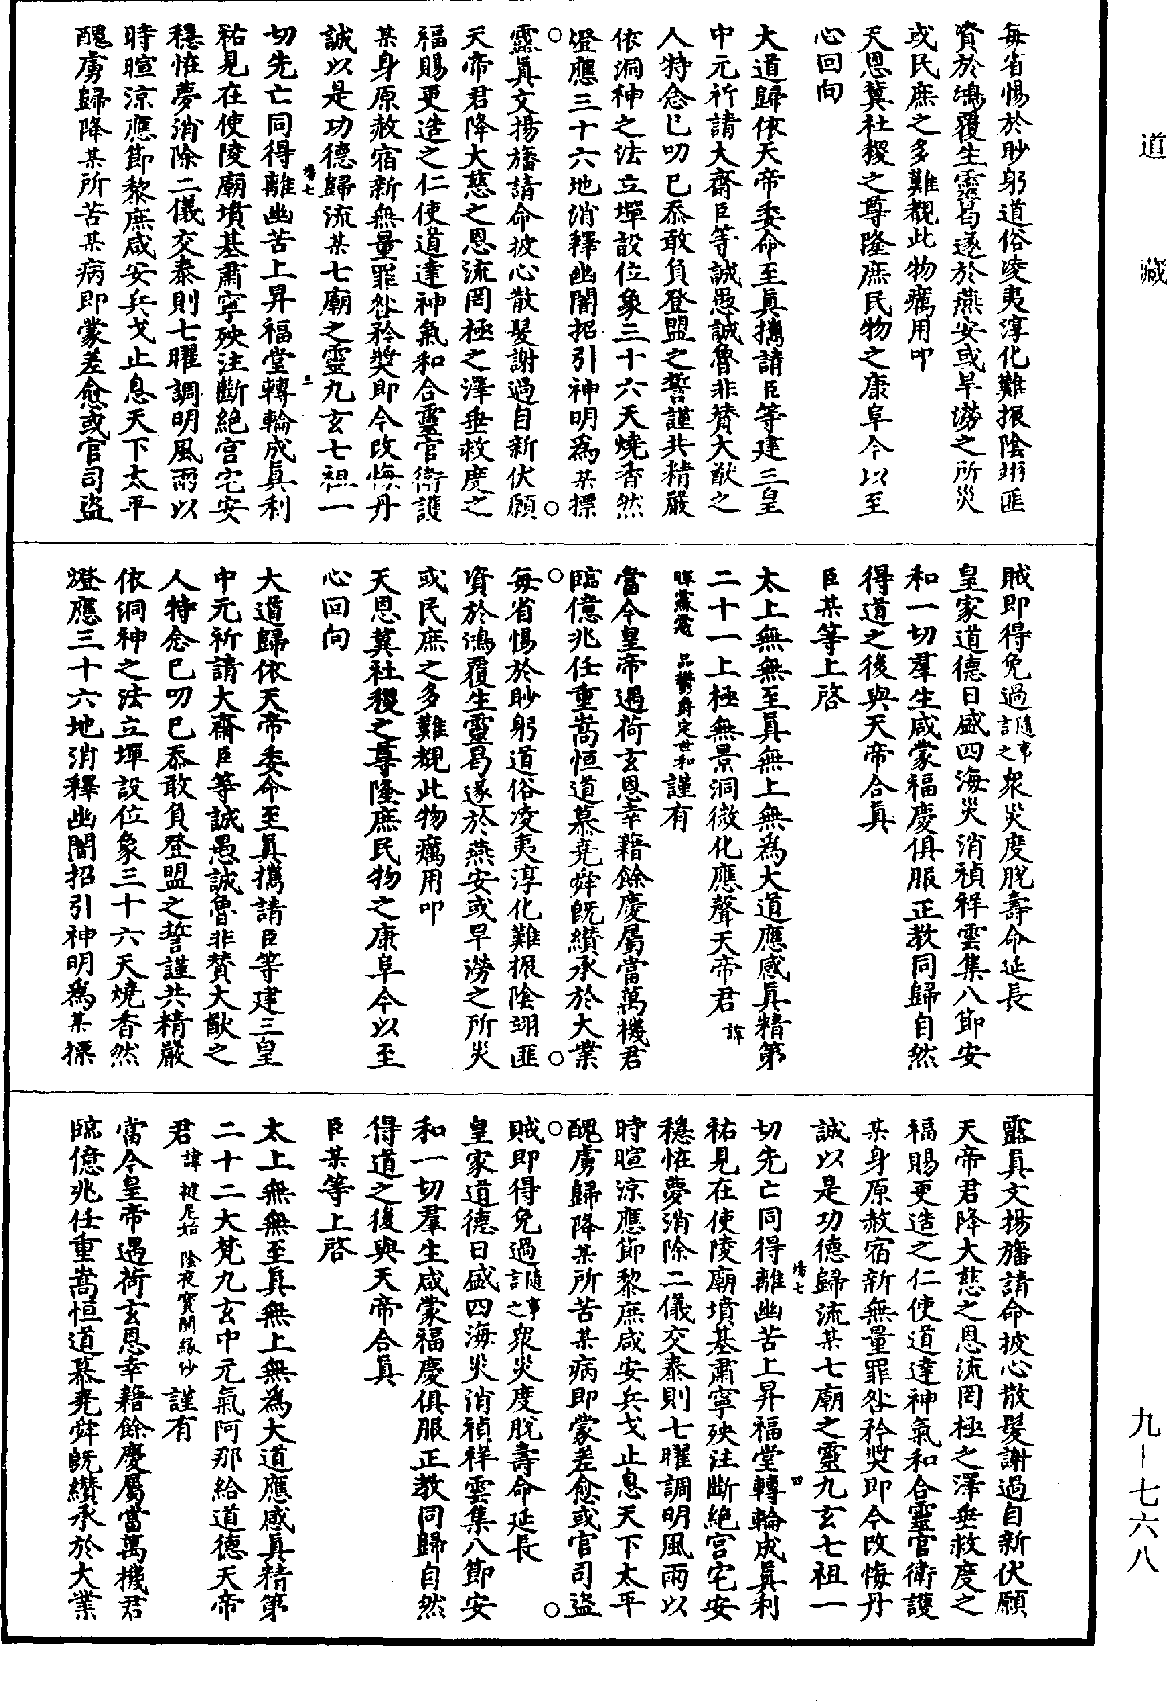 道藏
每省惕於眇躬道俗凌夷淳化難振陰翊匪
資於鴻覆生靈曷遂於燕安或旱澇之所災
或民庶之多難覩此物癘用叩
天恩冀社稷之尊隆庶民物之康阜今以至
心回向
大道歸依天帝委命至真攜請臣等建三皇
中元祈請大齋臣等誠愚誠魯非贊大猷之
人特念已叨已忝敢負登盟之誓謹共精嚴
依洞神之法立墠設位象三十六天燒香然
燈應三十六地消釋幽闇招引神明為某摽
靈真文揚旛請命披心散髮謝過自新伏願
天帝君降大慈之恩流罔極之澤垂救度之
福賜更造之仁使道達神氣和合靈官衛護
某身原赦宿新無量罪咎矜獎即今改悔丹
誠以是功德歸流某七廟之靈九玄七祖一
切先亡同得離幽苦上昇福堂轉輪成真利
祐見在使陵廟墳基肅寧殃注斷絕宮宅安
穩怪夢消除二儀交泰則七曜調明風雨以
時暄涼應節黎庶咸安兵戈止息天下太平
醜虜歸降某所苦某病即蒙差愈或官司盜
賊即得免過隨事言之眾災度脫壽命延長
皇家道德日盛四海災消禎祥雲集八節安
和一切羣生咸蒙福慶俱服正教同歸自然
得道之後與天帝合真
臣某等上啓
太上無無至真無上無為大道應感真精第
二十一上極無景洞微化應聲天帝君諱
品鬱身定世和謹有
當今皇帝遇荷玄恩幸藉餘慶屬當萬機君
臨億兆任重嵩恒道慕堯舜既纘承於大業
每省惕於眇躬道俗凌夷淳化難振陰翊匪
資於鴻覆生靈曷遂於燕安或旱澇之所災
或民庶之多難覩此物癘用叩
天恩冀社稷之尊隆庶民物之康阜今以至
心回向
大道歸依天帝委命至真攜請臣等建三皇
中元祈請大齋臣等誠愚誠魯非贊大猷之
人特念已叨已忝敢負登盟之誓謹共精嚴
依洞神之法立墠設位象三十六天燒香然
燈應三十六地消釋幽闇招引神明為某摽
靈真文揚旛請命披心散髮謝過自新伏願
天帝君降大慈之恩流罔極之澤垂救度之
福賜更造之仁使道達神氣和合靈官衛護
某身原赦宿新無量罪咎矜獎即今改悔丹
誠以是功德歸流某七廟之靈九玄七祖一
切先亡同得離幽苦上昇福堂轉輪成真利
祐見在使陵廟墳基肅寧殃注斷絕宮宅安
穩怪夢消除二儀交泰則七曜調明風雨以
時暄涼應節黎庶咸安兵戈止息天下太平
醜虜歸降某所苦某病即蒙差愈或官司盜
賊即得免過隨事言之眾災度脫壽命延長
皇家道德日盛四海災消禎祥雲集八節安
和一切羣生咸蒙福慶俱服正教同歸自然
得道之後與天帝合真
臣某等上啓
太上無無至真無上無為大道應感真精第
二十二大梵九玄中元氣阿那給道德天帝
君諱 謹有
當今皇帝遇荷玄恩幸藉餘慶屬當萬機君
臨億兆任重嵩恒道慕堯舜既纘承於大業
九-七六八